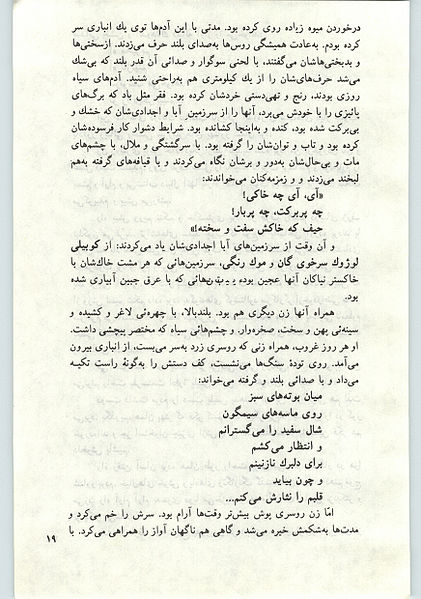 درخوردن میوه زیاده روی کرده بود. مدتی با این آدم‌ها توی یك انباری سر
کرده بودم. به‌عادت همیشگی روس‌ها به‌صدای بلند حرف می‌زدند. ازسختی‌ها
و بدبختی‌هاشان می‌گفتند، با لحنی سوگوار و صدائی آن قدر بلند که بی‌شك
می‌شد حرف‌های‌شان را از یك کیلومتری هم به‌راحتی شنید. آدم‌های سیاه
روزی بودند، رنج و تهی‌دستی خردشان کرده بود. فقر مثل باد که برگ‌های
پائیزی را با خودش می‌برد، آنها را از سرزمین آبا و اجدادی‌شان که خشك و
بی‌برکت شده بود، کنده و به‌اینجا کشانده بود. شرایط دشوار کار فرسوده‌شان
کرده بود و تاب و توان‌شان را گرفته بود. با سرگشتگی و ملال، با چشم‌های
مات و بی‌حال‌شان به‌دور و برشان نگاه می‌کردند و با قیافه‌های گرفته به‌هم
لبخند می‌زدند و و زمزمه‌کنان می‌خواندند:
«آی، آی چه خاکی!
چه پربرکت، چه پربار!
حیف که خاکش سفت و سخته!»
و آن وقت از سرزمین‌های آبا اجدادی‌شان یاد می‌کردند: از کوبیلی
لوژوك سرخوی گان و موك رنگی، سرزمین‌هائی که هر مشت خاك‌شان با
خاکستر نیاکان آنها عجین بوده زمین‌هائی که با عرق جبین آبیاری شده
بود.
همراه آنها زن دیگری هم بود. بلندبالا، با چهره‌ئی لاغر و کشیده و
سینه‌ئی پهن و سخت، صخره‌وار. و چشم‌هائی سیاه که مختصر پیچشی داشت.
او هر روز غروب، همراه زنی که روسری زرد به‌سر می‌بست، از انباری بیرون
می‌آمد. روی تودهٔ سنگ‌ها می‌نشست، کف دستش را به‌گونهٔ راست تکیه
می‌داد و با صدائی بلند و گرفته می‌خواند:
میان بوته‌های سبز
روی ماسه‌های سیمگون
شال سفید را می‌گسترانم
و انتظار می‌کشم
برای دلبرك نازنینم
و چون بیاید
قلبم را نثارش می‌کنم...
امّا زن روسری پوش بیش‌تر وقت‌ها آرام بود. سرش را خم می‌کرد و
مدت‌ها به‌شکمش خیره می‌شد و گاهی هم ناگهان آواز را همراهی می‌کرد. با
۱۹